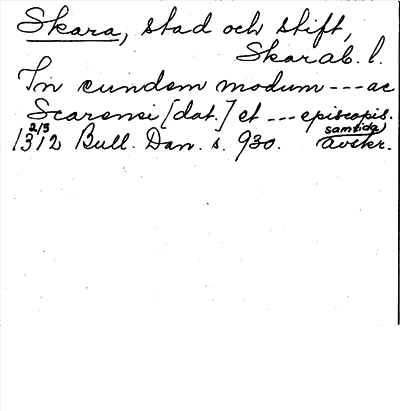 Skara, stad och stift,
Skarab. l.
In eundem modum --- ac
Scarensi [dat.] et --- episcopis.
2/3 samtida
1312 Bull. Dan. s. 930. avskr.